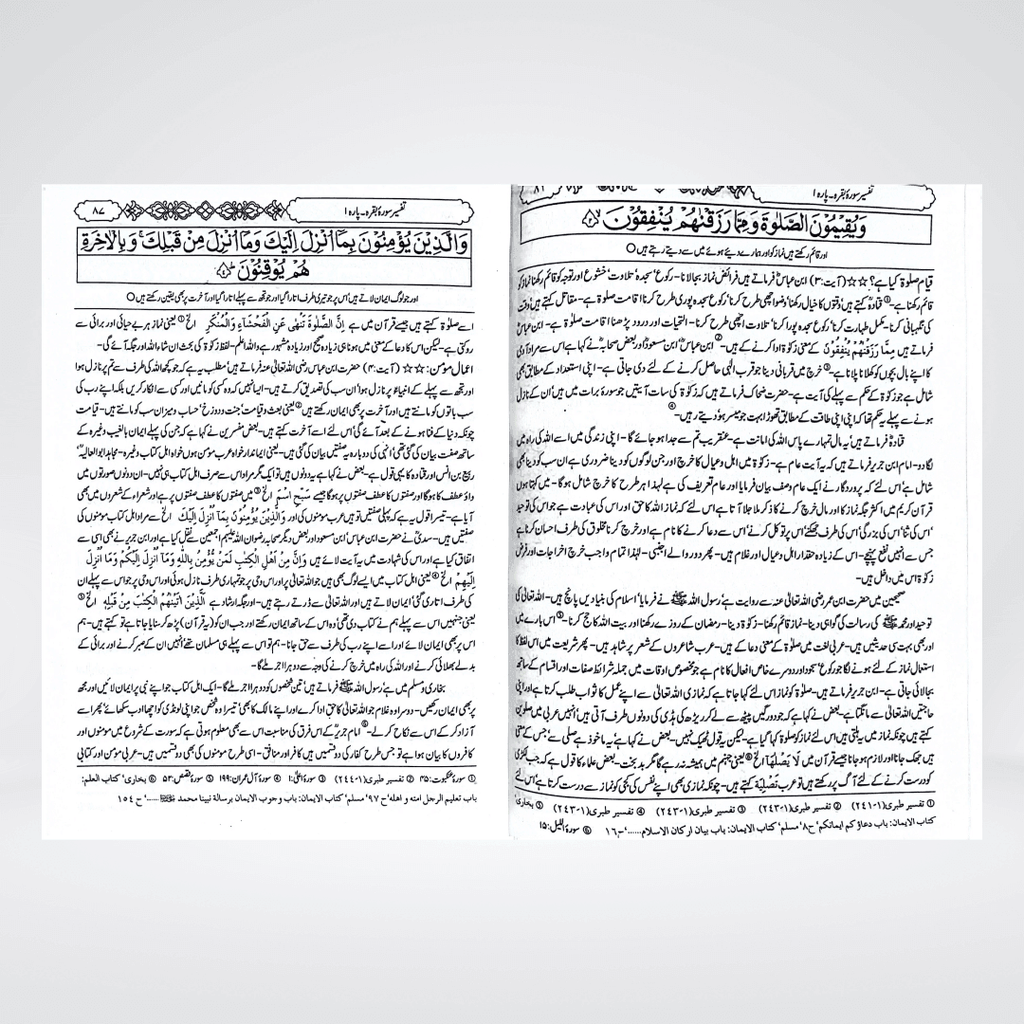 تفسیر سورۂ بقرہ۔ پارہ ۱
وَيُقِيمُونَ الصَّلٰوةَ وَمِمَّا رَزَقْنٰهُمْ يُنْفِقُوْنَ
اور قائم رکھتے ہیں نماز کو اور ہمارے دیے ہوئے میں سے دیتے رہتے ہیں ○
قیام صلوٰۃ کیا ہے؟ ☆☆ (آیت:۳) ابن عباسؓ فرماتے ہیں فرائض نماز بجا لانا۔ رکوع' سجدہ' تلاوت' خشوع اور توجہ کو قائم رکھنا نماز کو
قائم رکھنا ہے۔① قتادہؒ کہتے ہیں وقتوں کا خیال رکھنا' وضو اچھی طرح کرنا' رکوع سجدہ پوری طرح کرنا اقامت صلوٰۃ ہے۔ مقاتل کہتے ہیں وقت
کی نگہبانی کرنا۔ مکمل طہارت کرنا' رکوع' سجدہ پورا کرنا' تلاوت اچھی طرح کرنا۔ التحیات اور درود پڑھنا اقامت صلوٰۃ ہے۔ ابن عباسؓ
فرماتے ہیں مِمَّا رَزَقْنٰهُمْ يُنْفِقُوْنَ کے معنی زکوٰۃ ادا کرنے کے ہیں۔② ابن عباسؓ' ابن مسعودؓ اور بعض صحابہؓ نے کہا ہے اس سے مراد آدمی
کا اپنے بال بچوں کو کھلانا پلانا ہے۔③ خرچ میں قربانی دینا جو قرب الٰہی حاصل کرنے کے لئے دی جاتی ہے۔ اپنی استعداد کے مطابق بھی
شامل ہے جو زکوٰۃ کے حکم سے پہلے کی آیت ہے۔ حضرت ضحاکؒ فرماتے ہیں کہ زکوٰۃ کی سات آیتیں جو سورۂ برات میں ہیں' ان کے نازل
ہونے سے پہلے یہ حکم تھا کہ اپنی اپنی طاقت کے مطابق تھوڑا بہت جو میسر ہو دیتے رہیں۔④
قتادہؒ فرماتے ہیں' یہ مال تمہارے پاس اللہ کی امانت ہے۔ عنقریب تم سے جدا ہو جائے گا۔ اپنی زندگی میں اسے اللہ کی راہ میں
لگا دو۔ امام ابن جریر فرماتے ہیں کہ یہ آیت عام ہے۔ زکوٰۃ میں اہل و عیال کا خرچ اور جن لوگوں کو دینا ضروری ہے ان سب کو دینا بھی
شامل ہے' اس لئے کہ پروردگار نے ایک عام وصف بیان فرمایا اور عام تعریف کی ہے لہٰذا ہر طرح کا خرچ شامل ہو گا۔ میں کہتا ہوں
قرآن کریم میں اکثر جگہ نماز کا اور مال خرچ کرنے کا ذکر ملا جلا آتا ہے اس لئے کہ نماز اللہ کا حق اور اس کی عبادت ہے جو اس کی توحید
'اس کی ثنا' اس کی بزرگی' اس کی طرف جھکنے' اس پر توکل کرنے' اس سے دعا کرنے کا نام ہے اور خرچ کرنا مخلوق کی طرف احسان کرنا ہے
جس سے انہیں نفع پہنچے۔ اس کے زیادہ حقدار اہل و عیال اور غلام ہیں۔ پھر دور والے اجنبی۔ لہٰذا تمام واجب خرچ اخراجات اور فرض
زکوٰۃ اس میں داخل ہیں۔
صحیحین میں حضرت ابن عمر رضی اللہ تعالیٰ عنہ سے روایت ہے رسول اللہ ﷺ نے فرمایا' اسلام کی بنیادیں پانچ ہیں۔ اللہ تعالیٰ کی
توحید اور محمد ﷺ کی رسالت کی گواہی دینا۔ نماز قائم رکھنا۔ زکوٰۃ دینا۔ رمضان کے روزے رکھنا اور بیت اللہ کا حج کرنا۔⑤ اس بارے میں
اور بھی بہت سی حدیثیں ہیں۔ عربی لغت میں صلوٰۃ کے معنی دعا کے ہیں۔ عرب شاعروں کے شعر اس پر شاہد ہیں۔ پھر شریعت میں اس لفظ کا
استعمال نماز کے لئے ہونے لگا جو رکوع' سجود اور دوسرے خاص افعال کا نام ہے جو مخصوص اوقات میں جملہ شرائط صفات اور اقسام کے ساتھ
بجالائی جاتی ہے۔ ابن جریر فرماتے ہیں۔ صلوٰۃ کو نماز اس لئے کہا جاتا ہے کہ نمازی اللہ تعالیٰ سے اپنے عمل کا ثواب طلب کرتا ہے اور اپنی
حاجتیں اللہ تعالیٰ سے مانگتا ہے۔ بعض نے کہا ہے کہ جو دو رگیں پیٹھ سے لے کر ریڑھ کی ہڈی کی دونوں طرف آتی ہیں' انہیں عربی میں صلوین
کہتے ہیں چونکہ نماز میں یہ ہلتی ہیں اس لئے نماز کو صلوٰۃ کہا گیا ہے۔ لیکن یہ قول ٹھیک نہیں۔ بعض نے کہا ہے' یہ ماخوذ ہے صلی سے' جس کے معنی
ہیں چپک جانا اور لازم ہو جانا جیسے قرآن میں لَا يَصْلٰهَا الخ⑥ یعنی جہنم میں ہمیشہ نہ رہے گا مگر بد بخت۔ بعض علماء کا قول ہے کہ جب لکڑی
کو درست کرنے کے لئے آگ پر رکھتے ہیں تو عرب تَصْلِيَة کہتے ہیں۔ چونکہ نمازی بھی اپنے نفس کی کجی کو نماز سے درست کرتا ہے' اس لئے
① تفسیر طبری (۱-۲۴۱) ② تفسیر طبری (۱-۲۴۳) ③ تفسیر طبری (۱-۲۴۳) ④ تفسیر طبری (۱-۲۴۳) ⑤ بخاری'
کتاب الایمان: باب دعاؤکم ایمانکم' ح ۸' مسلم' کتاب الایمان: باب بیان ارکان الاسلام......' ح ۱۶ ⑥ سورۂ اللیل: ۱۵
تفسیر سورۂ بقرہ۔ پارہ ۱
۸۷
وَالَّذِيْنَ يُؤْمِنُوْنَ بِمَآ اُنْزِلَ اِلَيْكَ وَمَآ اُنْزِلَ مِنْ قَبْلِكَ ۚ وَبِالْاٰخِرَةِ
هُمْ يُوْقِنُوْنَ
اور جو لوگ ایمان لاتے ہیں اس پر جو تیری طرف اتارا گیا اور جو تجھ سے پہلے اتارا گیا اور آخرت پر بھی یقین رکھتے ہیں ○
اسے صلوٰۃ کہتے ہیں جیسے قرآن میں ہے اِنَّ الصَّلٰوةَ تَنْهٰى عَنِ الْفَحْشَآءِ وَالْمُنْكَرِ الخ① یعنی نماز ہر بے حیائی اور برائی سے
روکتی ہے۔ لیکن اس کا دعا کے معنی میں ہونا ہی زیادہ صحیح اور زیادہ مشہور ہے واللہ اعلم۔ لفظ زکوٰۃ کی بحث ان شاء اللہ اور جگہ آئے گی۔
اعمال مومن: ☆☆ (آیت:۴) حضرت ابن عباس رضی اللہ تعالیٰ عنہ فرماتے ہیں' مطلب یہ ہے کہ جو کچھ اللہ کی طرف سے تم پر نازل ہوا
اور تجھ سے پہلے کے انبیاء پر نازل ہوا' ان سب کی تصدیق کرتے ہیں۔ ایسا نہیں کہ وہ کسی کو مانیں اور کسی سے انکار کریں بلکہ اپنے رب کی
سب باتوں کو مانتے ہیں اور آخرت پر بھی ایمان رکھتے ہیں② یعنی بعث و قیامت' جنت و دوزخ' حساب و میزان سب کو مانتے ہیں۔ قیامت
چونکہ دنیا کے فنا ہونے کے بعد آئے گی' اس لئے اسے آخرت کہتے ہیں۔ بعض مفسرین نے کہا ہے کہ جن کی پہلے ایمان بالغیب وغیرہ کے
ساتھ صفت بیان کی گئی تھی' انہی کی دوبارہ یہ صفتیں بیان کی گئی ہیں۔ یعنی ایماندار خواہ عرب مومن ہوں خواہ اہل کتاب وغیرہ۔ مجاہد' ابو العالیہؒ
ربیع بن انس اور قتادہ کا یہی قول ہے۔ بعض نے کہا ہے یہ دونوں ہیں تو ایک مگر مراد اس سے صرف اہل کتاب ہی نہیں۔ ان دونوں صورتوں میں
واؤ عطف کا ہو گا اور صفتوں کا عطف صفتوں پر ہو گا جیسے سَبِّحِ اسْمَ الخ③ میں صفتوں کا عطف صفتوں پر ہے اور شعراء کے شعروں میں بھی
آیا ہے۔ تیسرا قول یہ ہے کہ پہلی صفتیں تو ہیں عرب مومنوں کی اور وَالَّذِيْنَ يُؤْمِنُوْنَ بِمَآ اُنْزِلَ اِلَيْكَ الخ سے مراد اہل کتاب مومنوں کی
صفتیں ہیں۔ سدیؒ نے حضرت ابن عباس' ابن مسعود اور بعض دیگر صحابہ رضوان اللہ علیہم اجمعین سے نقل کیا ہے اور ابن جریر نے بھی اسی سے
اتفاق کیا ہے اور اس کی شہادت میں یہ آیت لائے ہیں وَاِنَّ مِنْ اَهْلِ الْكِتٰبِ لَمَنْ يُّؤْمِنُ بِاللّٰهِ وَمَآ اُنْزِلَ اِلَيْكُمْ وَمَآ اُنْزِلَ
اِلَيْهِمْ الخ④ یعنی اہل کتاب میں ایسے لوگ بھی ہیں جو اللہ تعالیٰ پر اور اس وحی پر جو تمہاری طرف نازل ہوئی اور اس وحی پر جو اس سے پہلے ان
کی طرف اتاری گئی' ایمان لاتے ہیں اور اللہ تعالیٰ سے ڈرتے رہتے ہیں۔ اور جگہ ارشاد ہے اَلَّذِيْنَ اٰتَيْنٰهُمُ الْكِتٰبَ مِنْ قَبْلِهٖ الخ⑤
یعنی جنہیں اس سے پہلے ہم نے کتاب دی تھی' وہ اس کے ساتھ ایمان رکھتے اور جب ان کو (یہ قرآن) پڑھ کر سنایا جاتا ہے تو کہتے ہیں۔ ہم
اس پر بھی ایمان لائے اور اسے اپنے رب کی طرف سے حق جانا۔ ہم تو اس سے پہلے ہی مسلمان تھے' انہیں ان کے صبر کرنے اور برائی کے
بدلے بھلائی کرنے اور اللہ کی راہ میں خرچ کرنے کی وجہ سے دوہرا اجر ملے گا۔
بخاری و مسلم میں ہے' رسول اللہ ﷺ فرماتے ہیں' تین شخصوں کو دوہرا اجر ملے گا۔ ایک اہل کتاب جو اپنے نبی پر ایمان لائیں اور مجھ
پر بھی ایمان رکھیں۔ دوسرا وہ غلام جو اللہ تعالیٰ کا حق ادا کرے اور اپنے مالک کا بھی' تیسرا وہ شخص جو اپنی لونڈی کو اچھا ادب سکھائے' پھر اسے
آزاد کر کے اس سے نکاح کر لے۔⑥ امام جریرؒ کے اس فرق کی مناسبت اس سے بھی معلوم ہوتی ہے کہ سورت کے شروع میں مومنوں اور
کافروں کا بیان ہوا ہے تو جس طرح کفار کی دو قسمیں ہیں کافر اور منافق۔ اسی طرح مومنوں کی بھی دو قسمیں ہیں۔ عربی مومن اور کتابی
① سورۂ عنکبوت: ۴۵ ② تفسیر طبری (۱-۲۴۴) ③ سورۂ اعلیٰ: ۱ ④ سورۂ آل عمران: ۱۹۹ ⑤ سورۂ قصص: ۵۲ ⑥ بخاری' کتاب العلم:
باب تعلیم الرجل امته و اهله' ح ۹۷' مسلم' کتاب الایمان: باب وجوب الایمان برسالة نبینا محمد ﷺ......' ح ۱۵۴